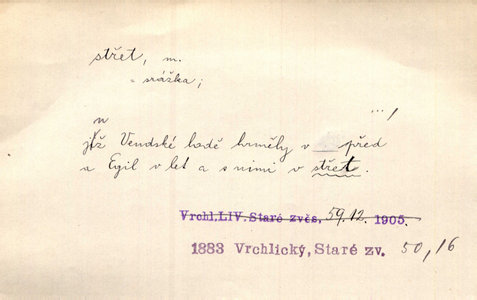 střet, m.
= srážka;
… /
již Vendské lodě hrměly v před
a Egil v let a s nimi v střet.
Vrchl.LIV. Staré zvěs. 59.12. 1905.
1883 Vrchlický, Staré zv. 50, 16